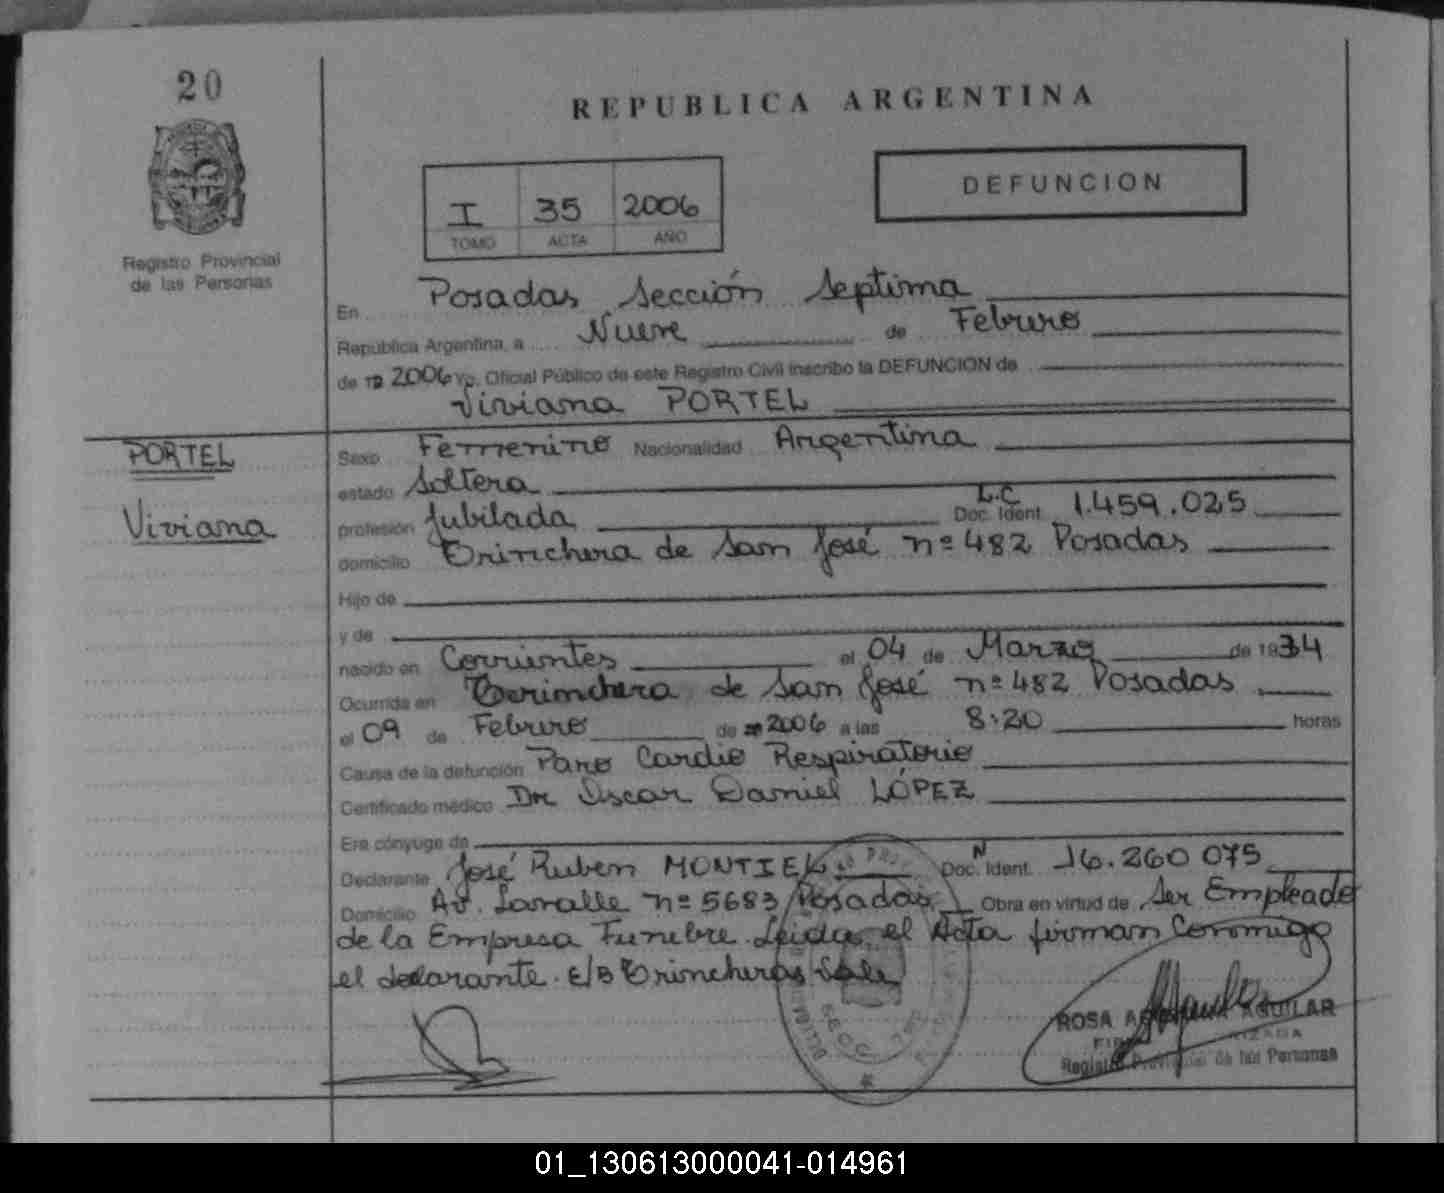 20
REPUBLICA ARGENTINA
DEFUNCION
I 35 2006
TOMO ACTA AÑO
Registro Provincial
de las Personas
En Posadas Sección Septima
República Argentina, a Nueve de Febrero
de 2006 Yo, Oficial Público de este Registro Civil inscribo la DEFUNCION de
Viviana PORTEL
PORTEL
Viviana
Sexo Femenino Nacionalidad Argentina
estado Soltera
L.C
profesión Jubilada Doc. Ident. 1.459.025
domicilio Trinchera de San José nº 482 Posadas
Hijo de
y de
nacido en Corrientes el 04 de Marzo de 1934
Ocurrida en Trinchera de San José nº 482 Posadas
el 09 de Febrero de 2006 a las 8:20 horas
Causa de la defunción Paro Cardio Respiratorio
Certificado médico Dr Oscar Daniel LÓPEZ
Era cónyuge de
Declarante José Ruben MONTIEL Doc. N Ident. 16.260 075
Domicilio Av. Lavalle nº 5683 Posadas Obra en virtud de Ser Empleado
de la Empresa Funebre. Leida el Acta firman Conmigo
el declarante. E/B Trincheras Vale
ROSA AGUILAR
Registro Provincial de las Personas
01_130613000041-014961